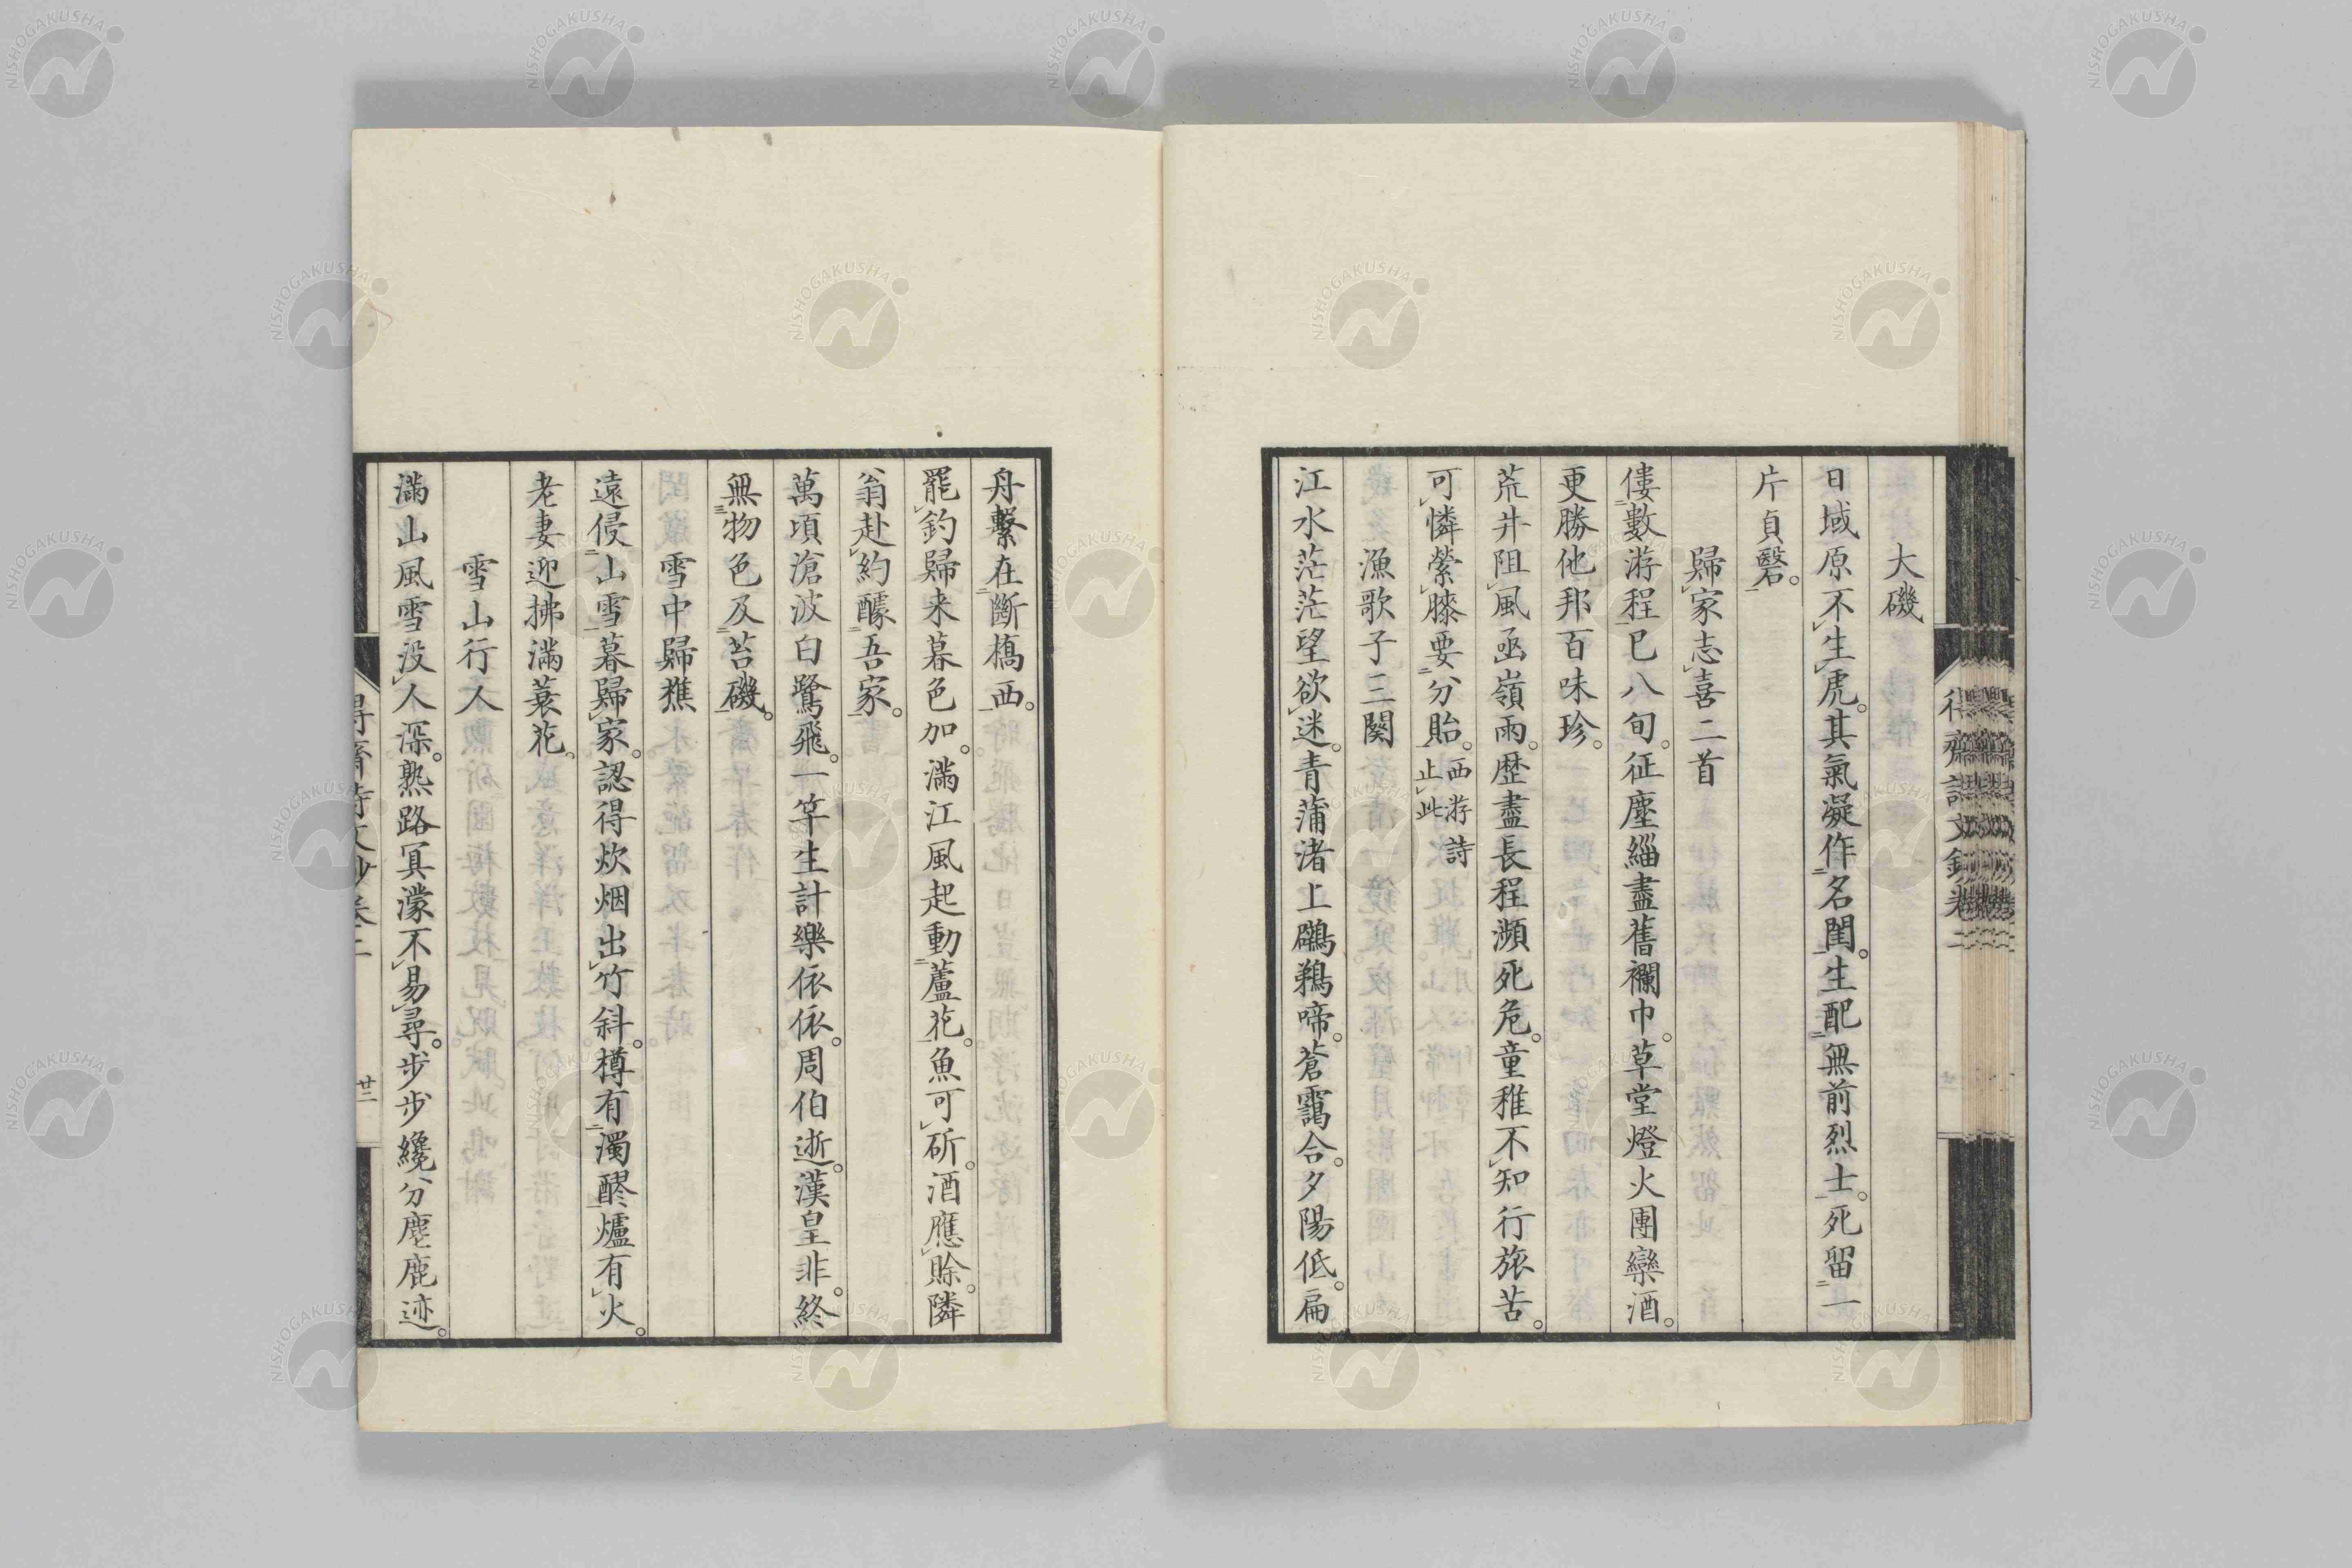 大磯
日域原不生虎。其氣凝作名閨。生配無前烈士。死留一
片貞毉。
歸家志喜二首
僂數游程已八旬。征塵緇盡舊襴巾。草堂燈火團欒酒。
更勝他邦百味珍。
荒井阻風函嶺雨。歴盡長程瀕死危。童稚不知行旅苦。
可憐縈膝要分貽。西游詩止此
漁歌子三闋
江水茫茫望欲迷。青蒲渚上鷓鵜啼。蒼靄合。夕陽低。扁
舟繫在斷橋西。
罷釣歸来暮色加。滿江風起動蘆花。魚可斫。酒應賒。隣
翁赴約醵吾家。
萬頃滄波白鷺飛。一竿生計樂依依。周伯逝。漢皇非。終
無物色及苔磯。
雪中歸樵
遠侵山雪暮歸家。認得炊烟出竹斜。樽有濁醪爐有火。
老妻迎拂滿蓑花。
雪山行人
滿山風雪没人深。熟路冥濛不易尋。步步纔分麈鹿迹。
得齋詩文鈔卷二
廿二
NISHOGAKUSHA